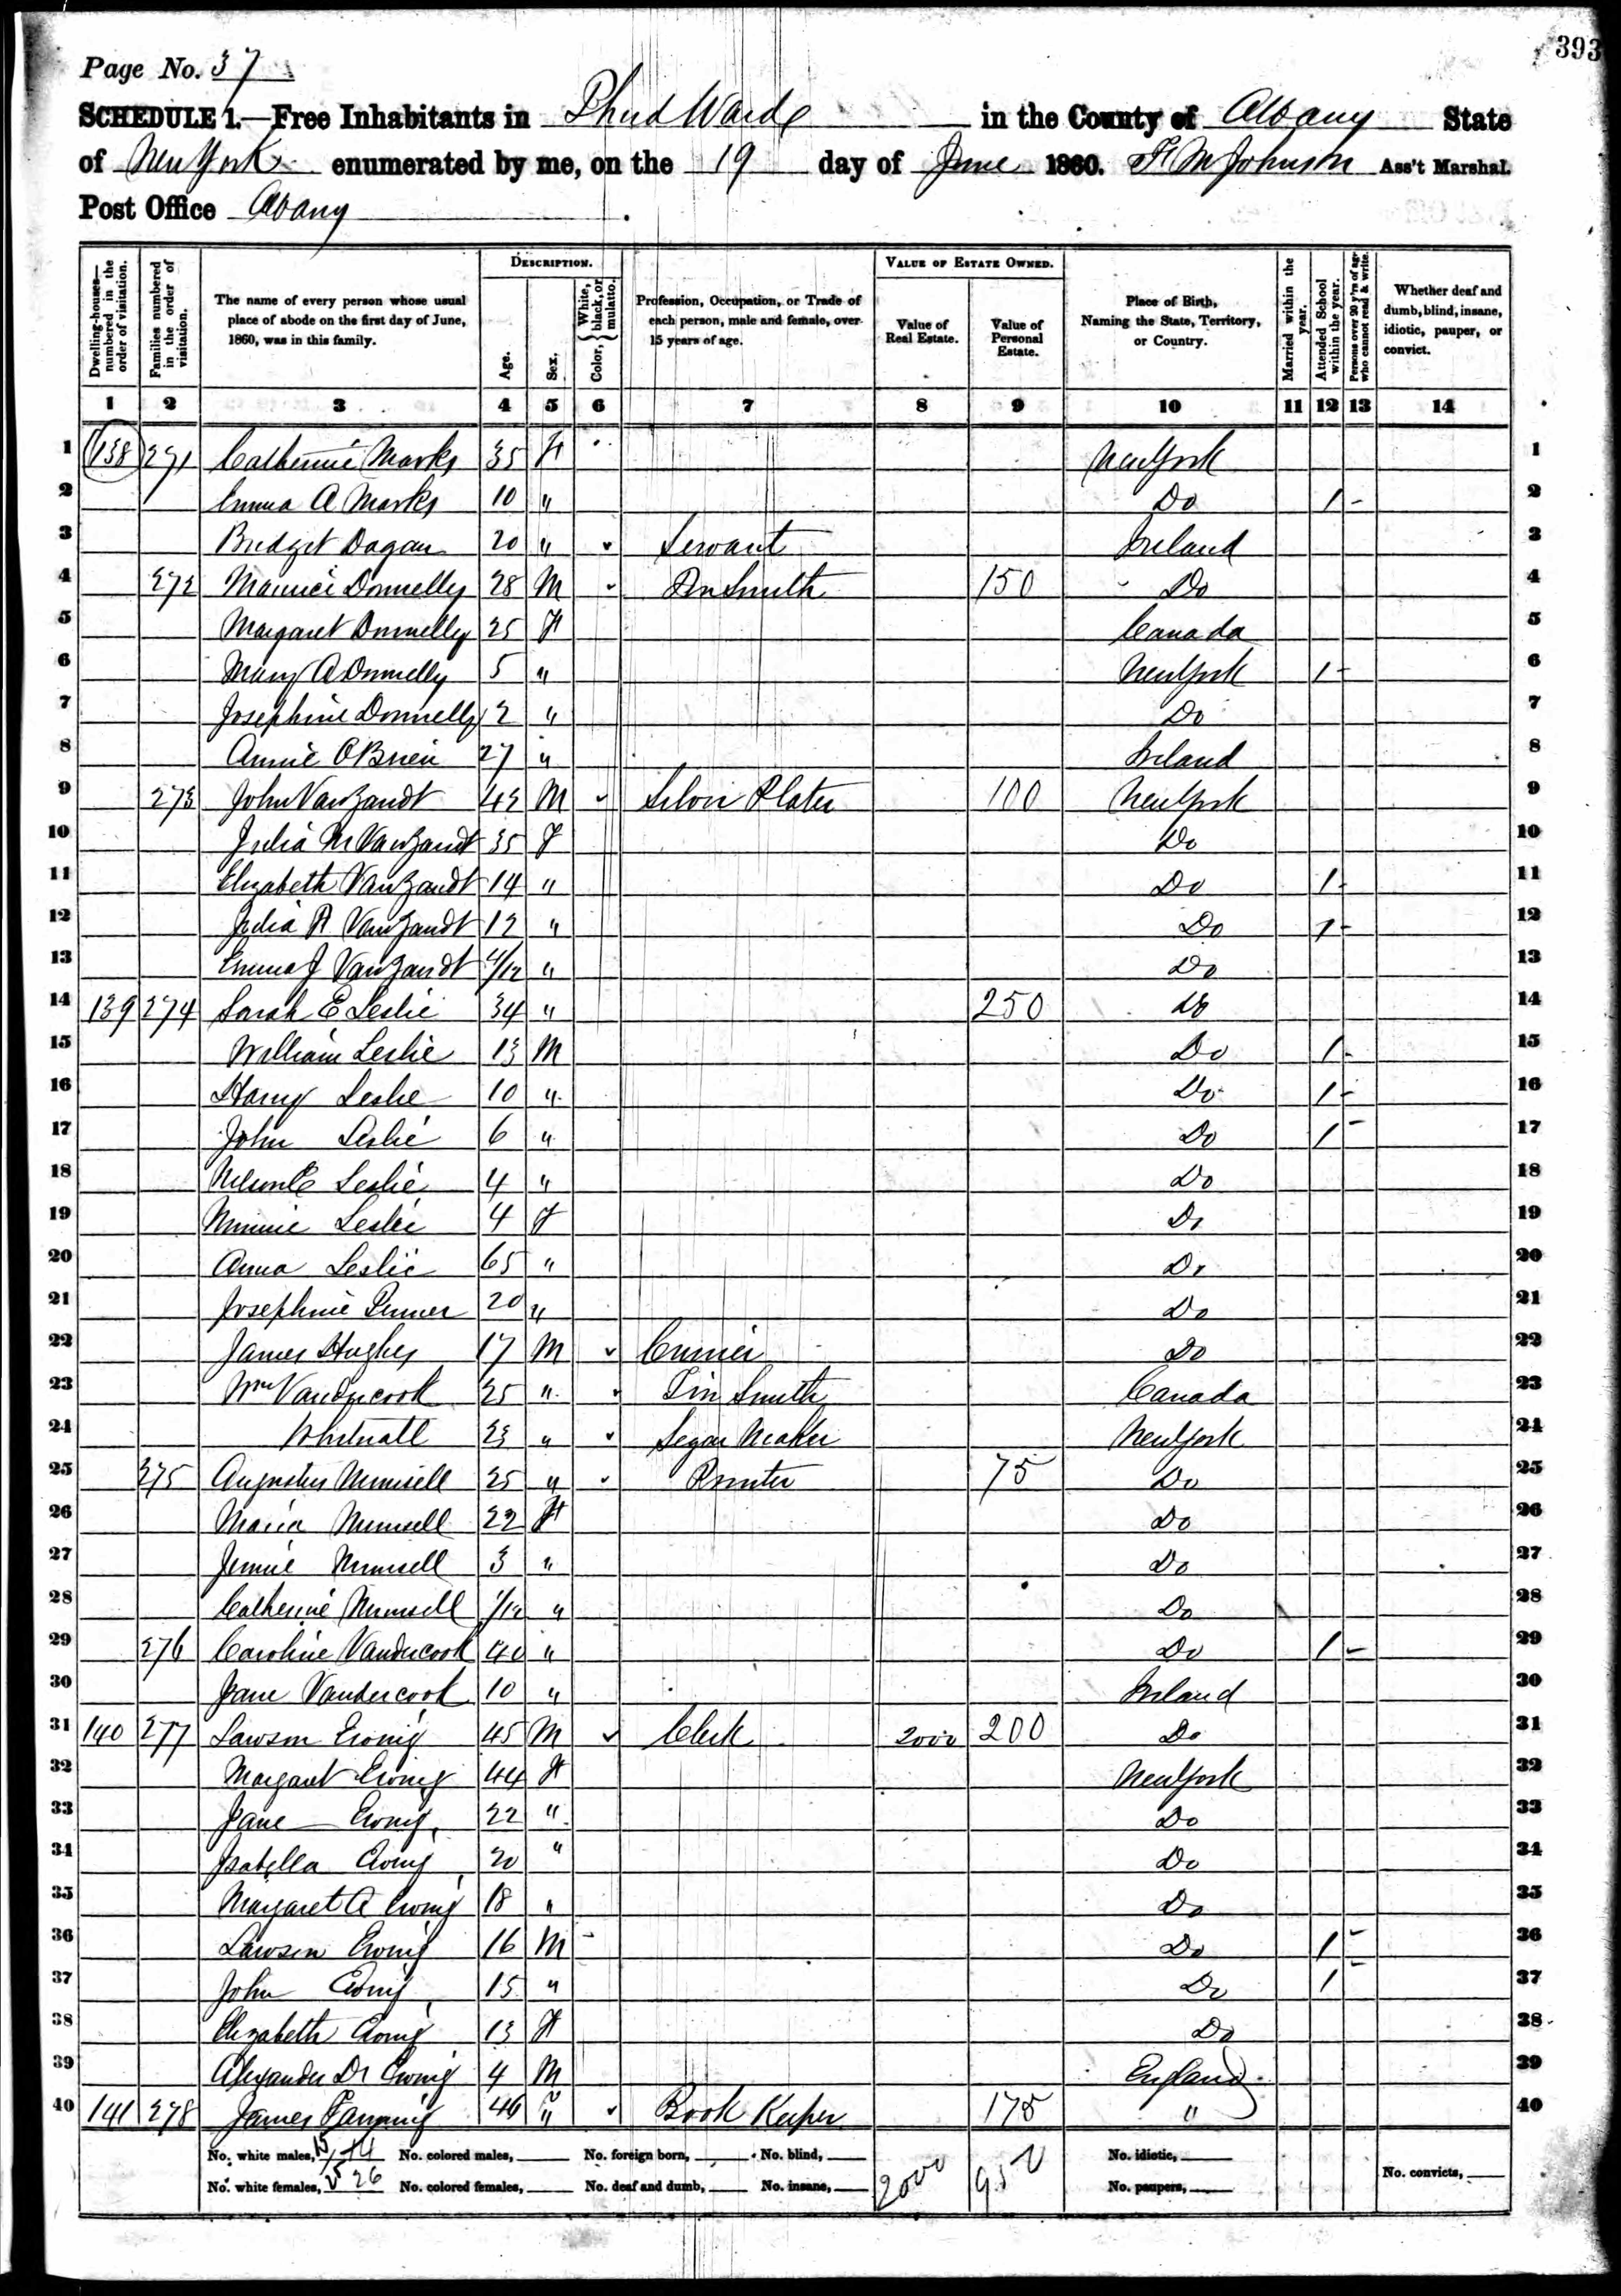 393
Page No. 37
SCHEDULE 1.—Free Inhabitants in Third Ward in the County of Albany State
of New York enumerated by me, on the 19 day of June 1860. M Johnson Ass't Marshal.
Post Office Albany
Dwelling-houses—numbered in the order of visitation.
Families numbered in the order of visitation.
The name of every person whose usual place of abode on the first day of June, 1860, was in this family.
DESCRIPTION.
Age.
Sex.
Color, { White, black, or mulatto.
Profession, Occupation, or Trade of each person, male and female, over 15 years of age.
VALUE OF ESTATE OWNED.
Value of Real Estate.
Value of Personal Estate.
Place of Birth, Naming the State, Territory, or Country.
Married within the year.
Attended School within the year.
Persons over 20 y'rs of age who cannot read & write.
Whether deaf and dumb, blind, insane, idiotic, pauper, or convict.
1 2 3 4 5 6 7 8 9 10 11 12 13 14
1 138 271 Catherine Marks 35 F New York 1
2 Emma A Marks 10 " Do 1 2
3 Bridget Dagan 20 " Servant Ireland 3
4 272 Maurice Donnelly 28 M Smith 150 Do 4
5 Margaret Donnelly 25 F Canada 5
6 Mary A Donnelly 5 " New York 1 6
7 Josephine Donnelly 2 " Do 7
8 Annie O'Brien 27 " Ireland 8
9 273 John VanZandt 43 M Silver Plater 100 New York 9
10 Julia M VanZandt 35 F Do 10
11 Elizabeth VanZandt 14 " Do 1 11
12 Julia A VanZandt 12 " Do 1 12
13 Emma J VanZandt /12 " Do 13
14 139 274 Sarah E Leslie 34 " 250 Do 14
15 William Leslie 13 M Do 1 15
16 Harry Leslie 10 " Do 1 16
17 John Leslie 6 " Do 1 17
18 Nelson C Leslie 4 " Do 18
19 Minnie Leslie 4 F Do 19
20 Anna Leslie 65 " Do 20
21 Josephine 20 " Do 21
22 James Hughes 17 M Currier Do 22
23 Wm Vandercook 25 " Tin Smith Canada 23
24 23 " Segar Maker New York 24
25 275 Augustus Munsell 25 " Printer 75 Do 25
26 Maria Munsell 22 F Do 26
27 Jennie Munsell 3 " Do 27
28 Catherine Munsell 1/12 " Do 28
29 276 Caroline Vandercook 40 " Do 1 29
30 Jane Vandercook 10 " Ireland 30
31 140 277 Lawson Ewing 45 M Clerk 2000 200 Do 31
32 Margaret Ewing 44 F New York 32
33 Jane Ewing 22 " Do 33
34 Isabella Ewing 20 " Do 34
35 Margaret A Ewing 18 " Do 35
36 Lawson Ewing 16 M Do 1 36
37 John Ewing 15 " Do 1 37
38 Elizabeth Ewing 13 F Do 38
39 Alexander Ewing 4 M England 39
40 141 278 James Fanning 46 " Book Keeper 175 " 40
No. white males, 15 14 No. colored males, No. foreign born, No. blind, 2000 950 No. idiotic,
No. white females, 25 26 No. colored females, No. deaf and dumb, No. insane, No. paupers, No. convicts,